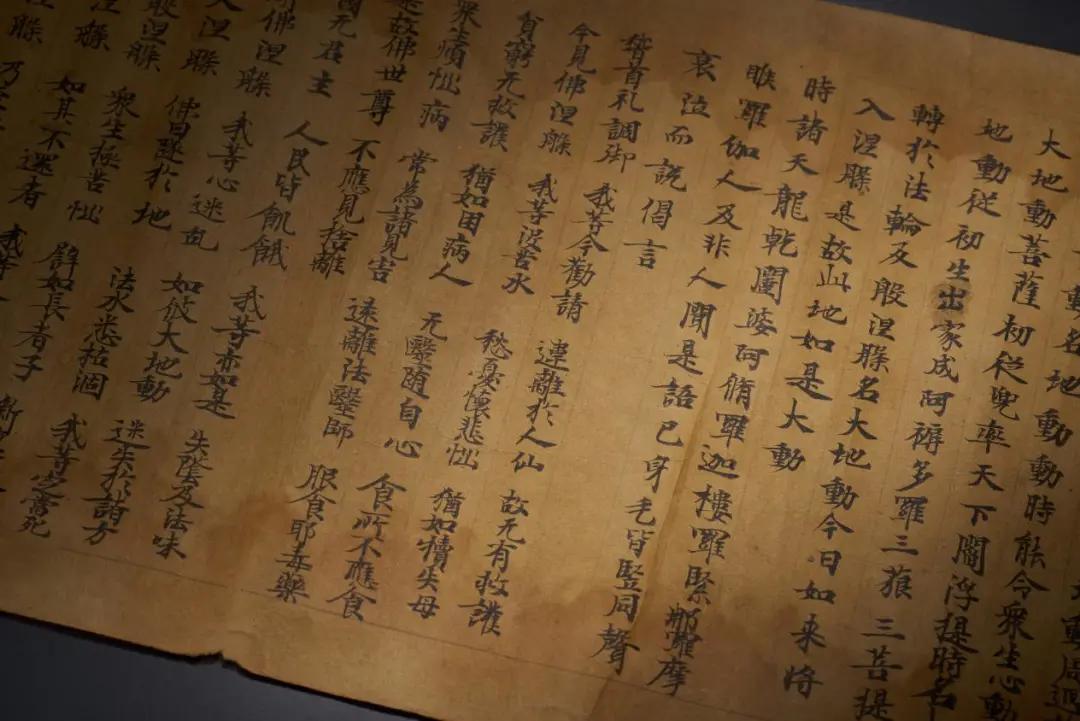 大動周迴
動名地動動時能令衆生心動
大地動菩薩初從兜率天下閻浮提時名
地動從初生出家成阿耨多羅三藐三菩提
轉於法輪及般涅槃名大地動今日如来將
入涅槃是故此地如是大動
時諸天龍乾闥婆阿脩羅迦樓羅緊那羅摩
睺羅伽人及非人聞是語已身毛皆竪同聲
哀泣而說偈言
稽首礼調御 我等今勸請 遠離於人仙 故无有救護
今見佛涅槃 我等没苦水 愁憂懷悲惱 猶如犢失母
貧窮无救護 猶如困病人 无醫随自心 食所不應食
衆生煩惱病 常為諸見害 遠離法醫師 服食耶毒藥
是故佛世尊 不應見捨離
國无君主 人民皆飢餓 我等亦如是 失蔭及法味
聞佛涅槃 我等心迷乱 如彼大地動 迷失於諸方
大仙入涅槃 佛日墜於地 法水悉枯涸 我等定當死
般涅槃 衆生極苦惱 譬如長者子 新
涅槃 如其不還者 我等
涅槃 乃至